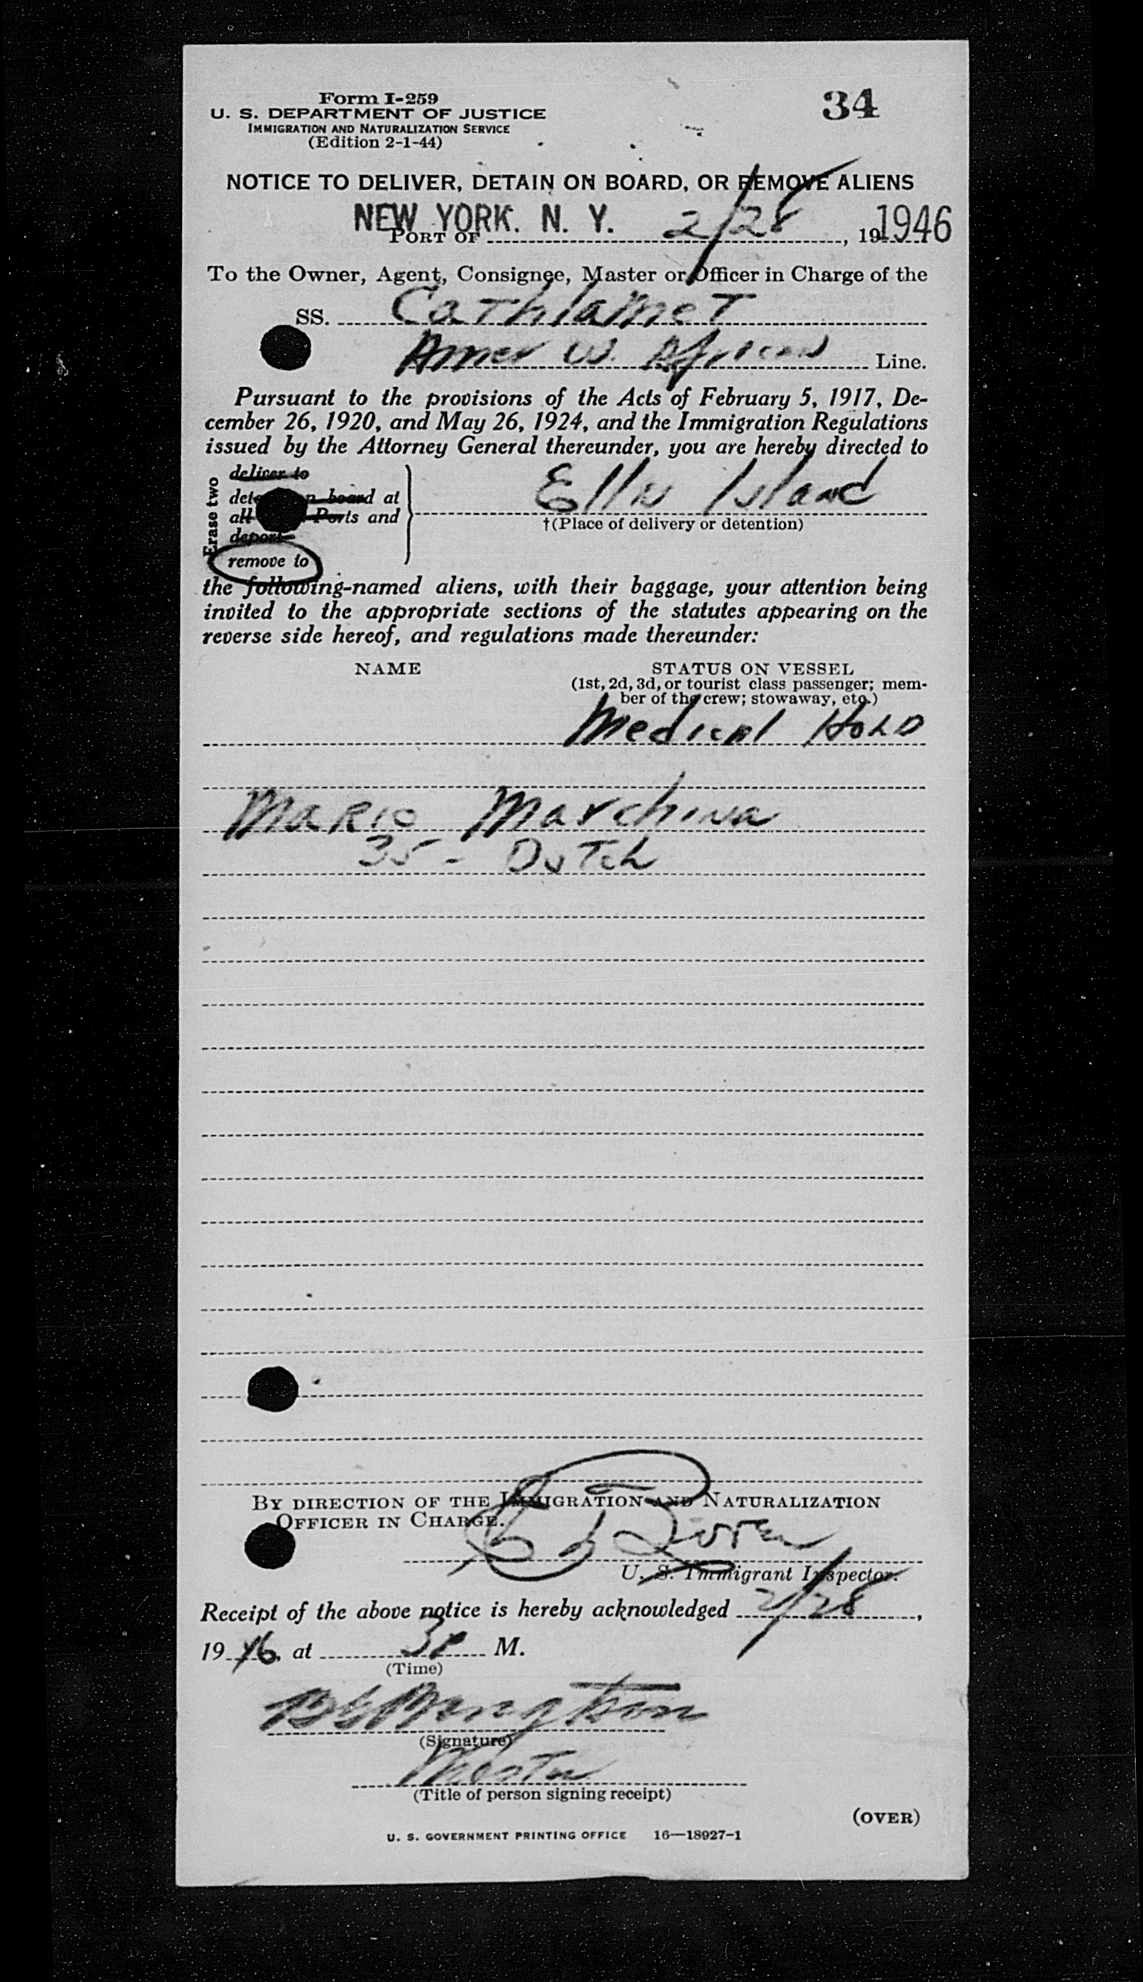 Form I-259
34
U. S. DEPARTMENT OF JUSTICE
IMMIGRATION AND NATURALIZATION SERVICE
(Edition 2-1-44)
NOTICE TO DELIVER, DETAIN ON BOARD, OR REMOVE ALIENS
NEW YORK. N. Y. 2/28 1946
PORT OF , 19
To the Owner, Agent, Consignee, Master or Officer in Charge of the
SS. Cathlamet
Amer W. African Line.
Pursuant to the provisions of the Acts of February 5, 1917, De-
cember 26, 1920, and May 26, 1924, and the Immigration Regulations
issued by the Attorney General thereunder, you are hereby directed to
Erase two
deliver to
board at
all Ports and
deport
remove to
Ellis Island
†(Place of delivery or detention)
the following-named aliens, with their baggage, your attention being
invited to the appropriate sections of the statutes appearing on the
reverse side hereof, and regulations made thereunder:
NAME STATUS ON VESSEL
(1st, 2d, 3d, or tourist class passenger; mem-
ber of the crew; stowaway, etc.)
Medical Hold
Mario Marchina
35 - Dutch
BY DIRECTION OF THE IMMIGRATION AND NATURALIZATION
OFFICER IN CHARGE.
U. S. Immigrant Inspector.
Receipt of the above notice is hereby acknowledged 2/28,
1946, at 3P M.
(Time)
(Signature)
Master
(Title of person signing receipt)
(OVER)
U. S. GOVERNMENT PRINTING OFFICE 16—18927-1